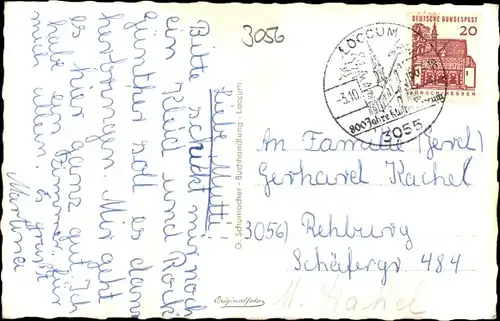 Liebe Mutti!
Bitte schickt mir noch
ein Kleid und Rock
Günther soll es dann
herbringen. Mir geht
es hier ganz gut. Ich
habe ein Zimmer für
mich allein. Es grüßt
Martina
3056
G. Schumacher - Buchhandlung - Loccum
Originalfoto
LOCCUM
-3.10.
800 Jahre Kloster Loccum
3055
DEUTSCHE BUNDESPOST
20
LORSCH HESSEN
An Familie
Gerhard Kachel
3056) Rehburg
Schäferstr 484